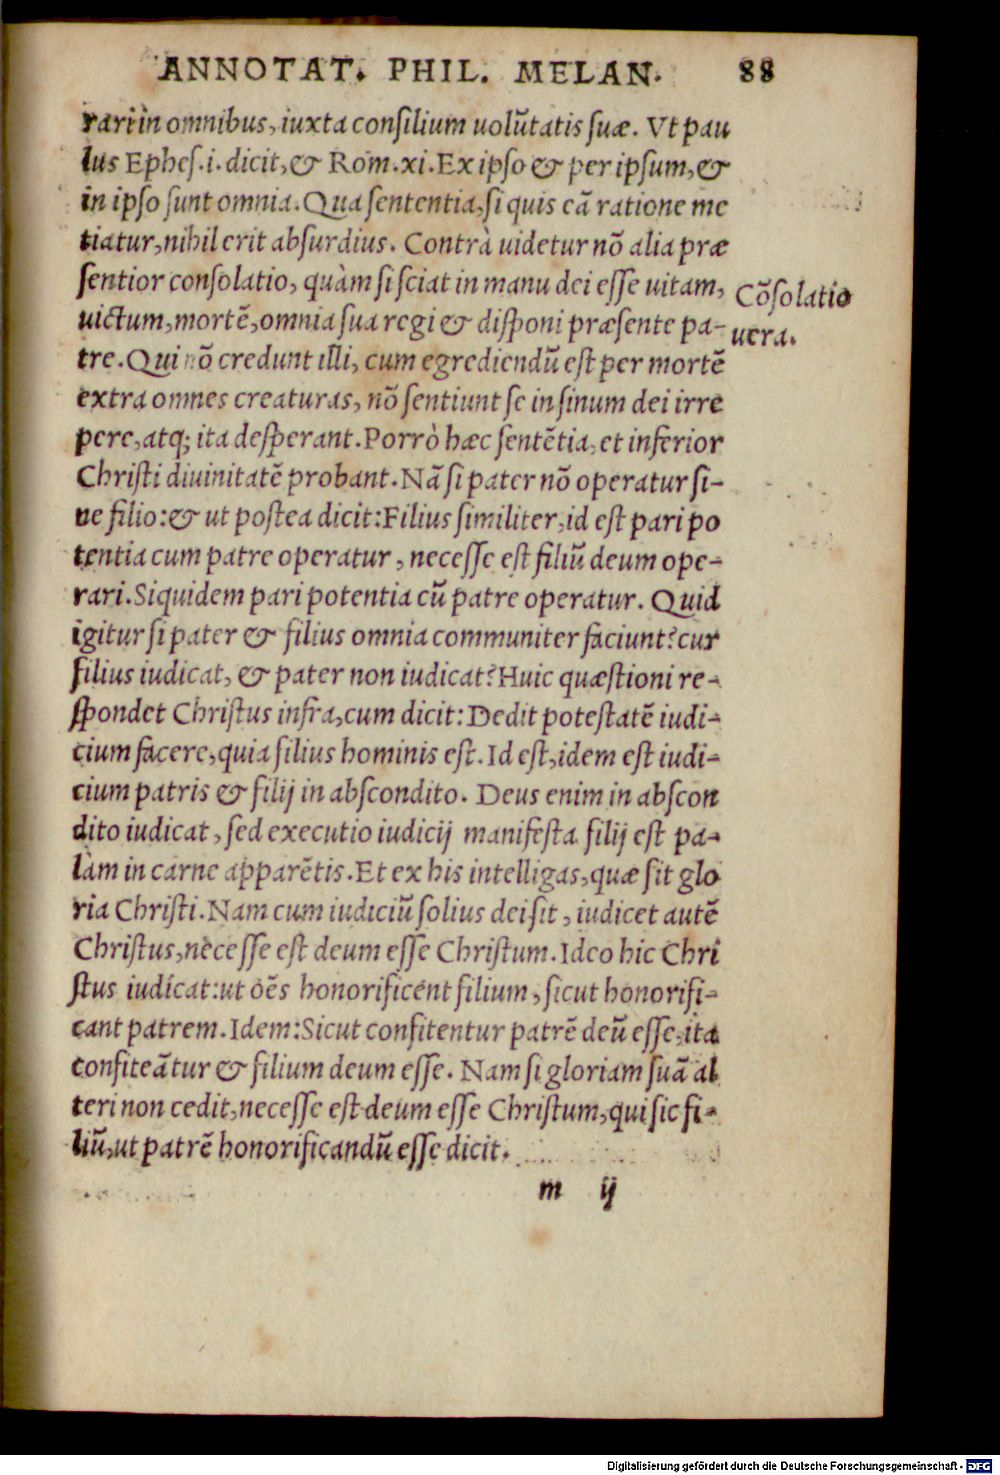 ANNOTAT. PHIL. MELAN. 88
rari in omnibus, iuxta consilium uolũtatis suæ. Vt pau
lus Ephes.i. dicit, & Rom.xi. Ex ipso & per ipsum, &
in ipso sunt omnia. Qua sententia, si quis eã ratione me
tiatur, nihil erit absurdius. Contrà uidetur nõ alia præ
sentior consolatio, quàm si sciat in manu dei esse uitam,
Cõsolatio
uera.
uictum, mortẽ, omnia sua regi & disponi præsente pa-
tre. Qui nõ credunt illi, cum egrediendũ est per mortẽ
extra omnes creaturas, nõ sentiunt se in sinum dei irre
pere, atq; ita desperant. Porrò hæc sentẽtia, et inferior
Christi diuinitatẽ probant. Nã si pater nõ operatur si-
ne filio: & ut postea dicit: Filius similiter, id est pari po
tentia cum patre operatur, necesse est filiũ deum ope-
rari. Siquidem pari potentia cũ patre operatur. Quid
igitur si pater & filius omnia communiter faciunt? cur
filius iudicat, & pater non iudicat? Huic quæstioni re-
spondet Christus infra, cum dicit: Dedit potestatẽ iudi-
cium facere, quia filius hominis est. Id est, idem est iudi-
cium patris & filij in abscondito. Deus enim in abscon
dito iudicat, sed executio iudicij manifesta filij est pa-
làm in carne apparẽtis. Et ex his intelligas, quæ sit glo
ria Christi. Nam cum iudiciũ solius dei sit, iudicet autẽ
Christus, necesse est deum esse Christum. Ideo hic Chri
stus iudicat: ut oẽs honorificent filium, sicut honorifi-
cant patrem. Idem: Sicut confitentur patrẽ deũ esse, ita
confiteãtur & filium deum esse. Nam si gloriam suã al
teri non cedit, necesse est deum esse Christum, qui sic fi-
liũ, ut patrẽ honorificandũ esse dicit.
m ij
Digitalisierung gefördert durch die Deutsche Forschungsgemeinschaft - DFG